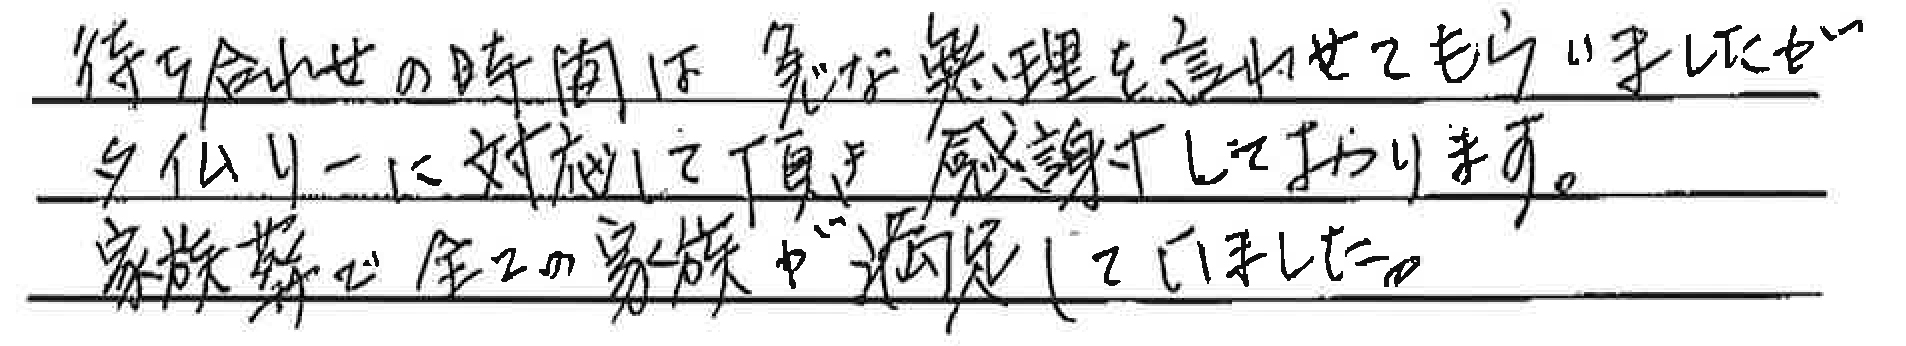 待ち合わせの時間は急な無理を言わせてもらいましたが
タイムリーに対応して頂き感謝しております。
家族葬で全ての家族が満足していました。